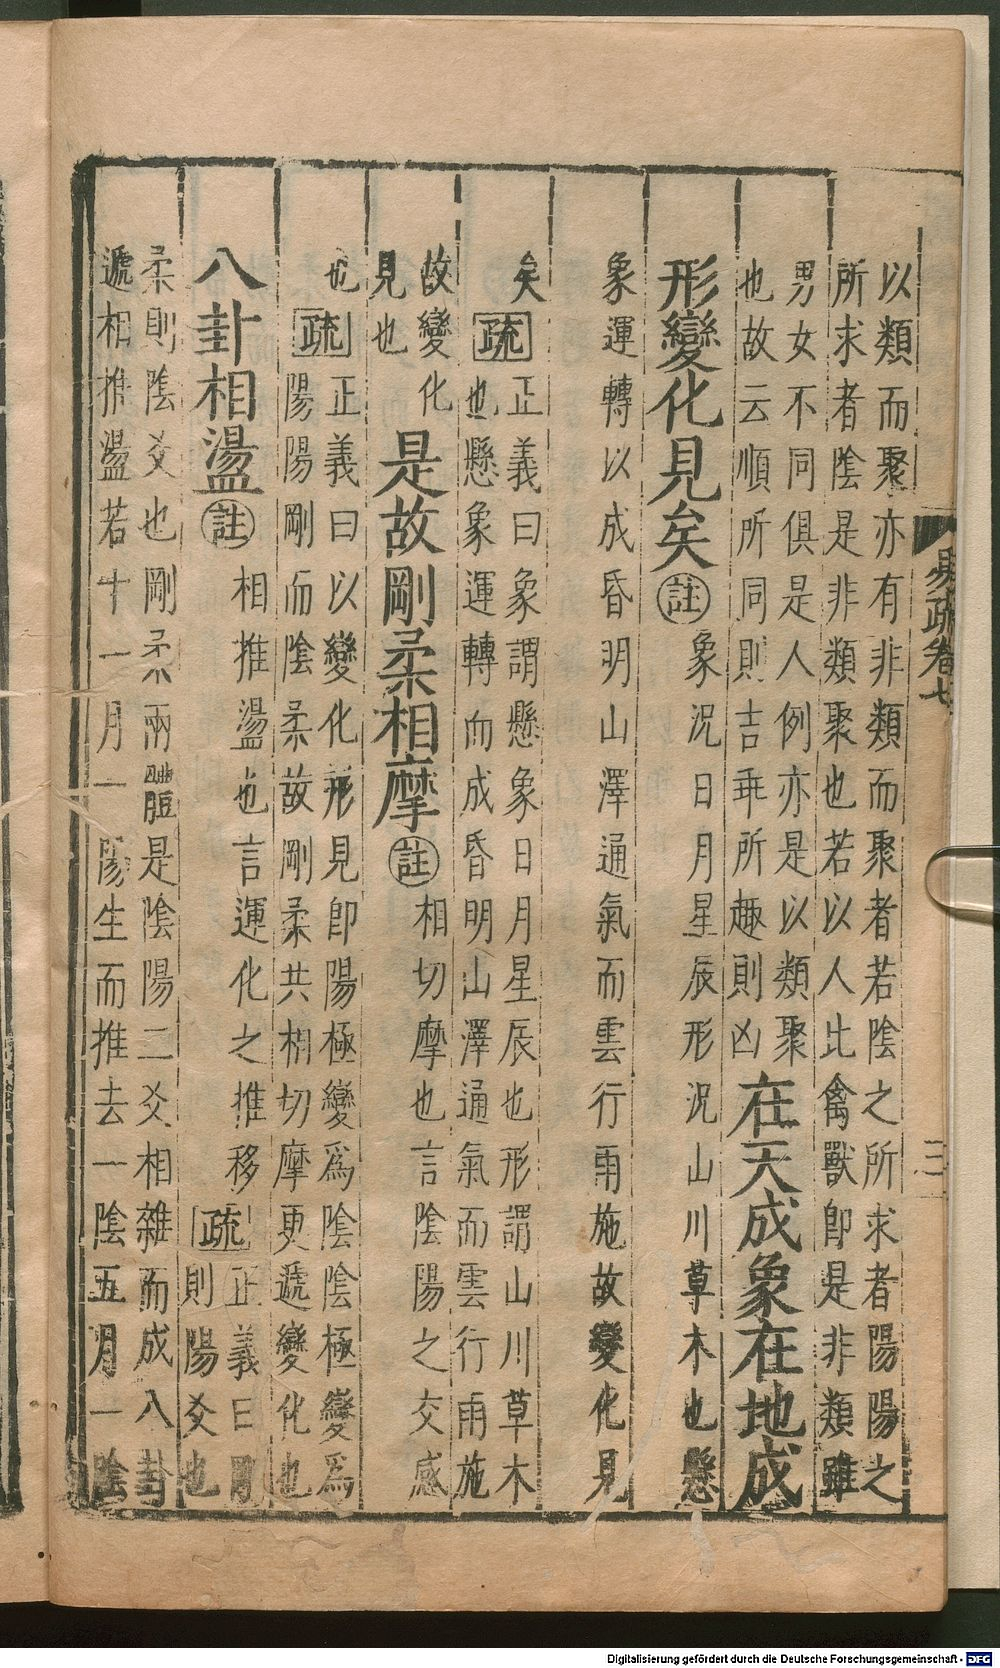 以類而聚亦有非類而聚者若陰之所求者陽陽之
所求者陰是非類聚也若以人比禽獸即是非類雖
男女不同俱是人例亦是以類聚
也故云順所同則吉乖所趣則凶
在天成象在地成
形變化見矣
註
象況日月星辰形況山川草木也懸
象運轉以成昏明山澤通氣而雲行雨施故變化見
矣
疏
正義曰象謂懸象日月星辰也形謂山川草木
也懸象運轉而成昏明山澤通氣而雲行雨施
故變化
見也
是故剛柔相摩
註
相切摩也言陰陽之交感
也
疏
正義曰以變化形見即陽極變爲陰陰極變爲
陽陽剛而陰柔故剛柔共相切摩更遞變化也
八卦相盪
註
相推盪也言運化之推移
疏
正義曰剛
則陽爻也
柔則陰爻也剛柔兩體是陰陽二爻相雜而成八卦
遞相推盪若十一月一陽生而推去一陰五月一陰
易疏卷七
三
Digitalisierung gefördert durch die Deutsche Forschungsgemeinschaft - DFG